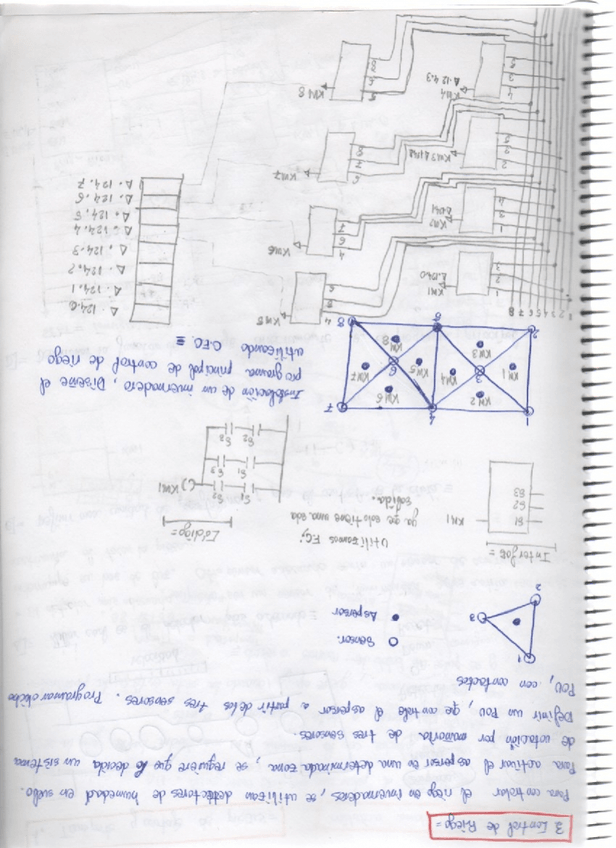 3 Control de Riego=
Para controlar el riego en invernaderos, se utilizan detectores de humedad en suelo.
Para activar el aspersor en una determinada zona, se requiere que lo decida un sistema
de votación por mayoría de tres sensores.
Definir un POU, que controle el aspersor a partir de los tres sensores. Programar dicho
POU, con contactos
1
2
3
Sensor.
Aspersor
Interfaz=
S1
S2
S3
KM1
Utilizamos FC;
ya que solo tiene una sola
salida.
Código=
S1
S2
KM1
S1
S3
S2
S3
Instalación de un invernadero, Diseñe el
programa principal de control de riego
utilizando CFC =
1
2
3
4
5
6
7
8
KM1
KM2
KM3
KM4
KM5
KM6
KM7
KM8
A. 124.0
A. 124.1
A. 124.2
A. 124.3
A. 124.4
A. 124.5
A. 124.6
A. 124.7
1 2 3 4 5 6 7 8
KM1
KM5
KM6
KM7
KM4
A. 124.3
KM8